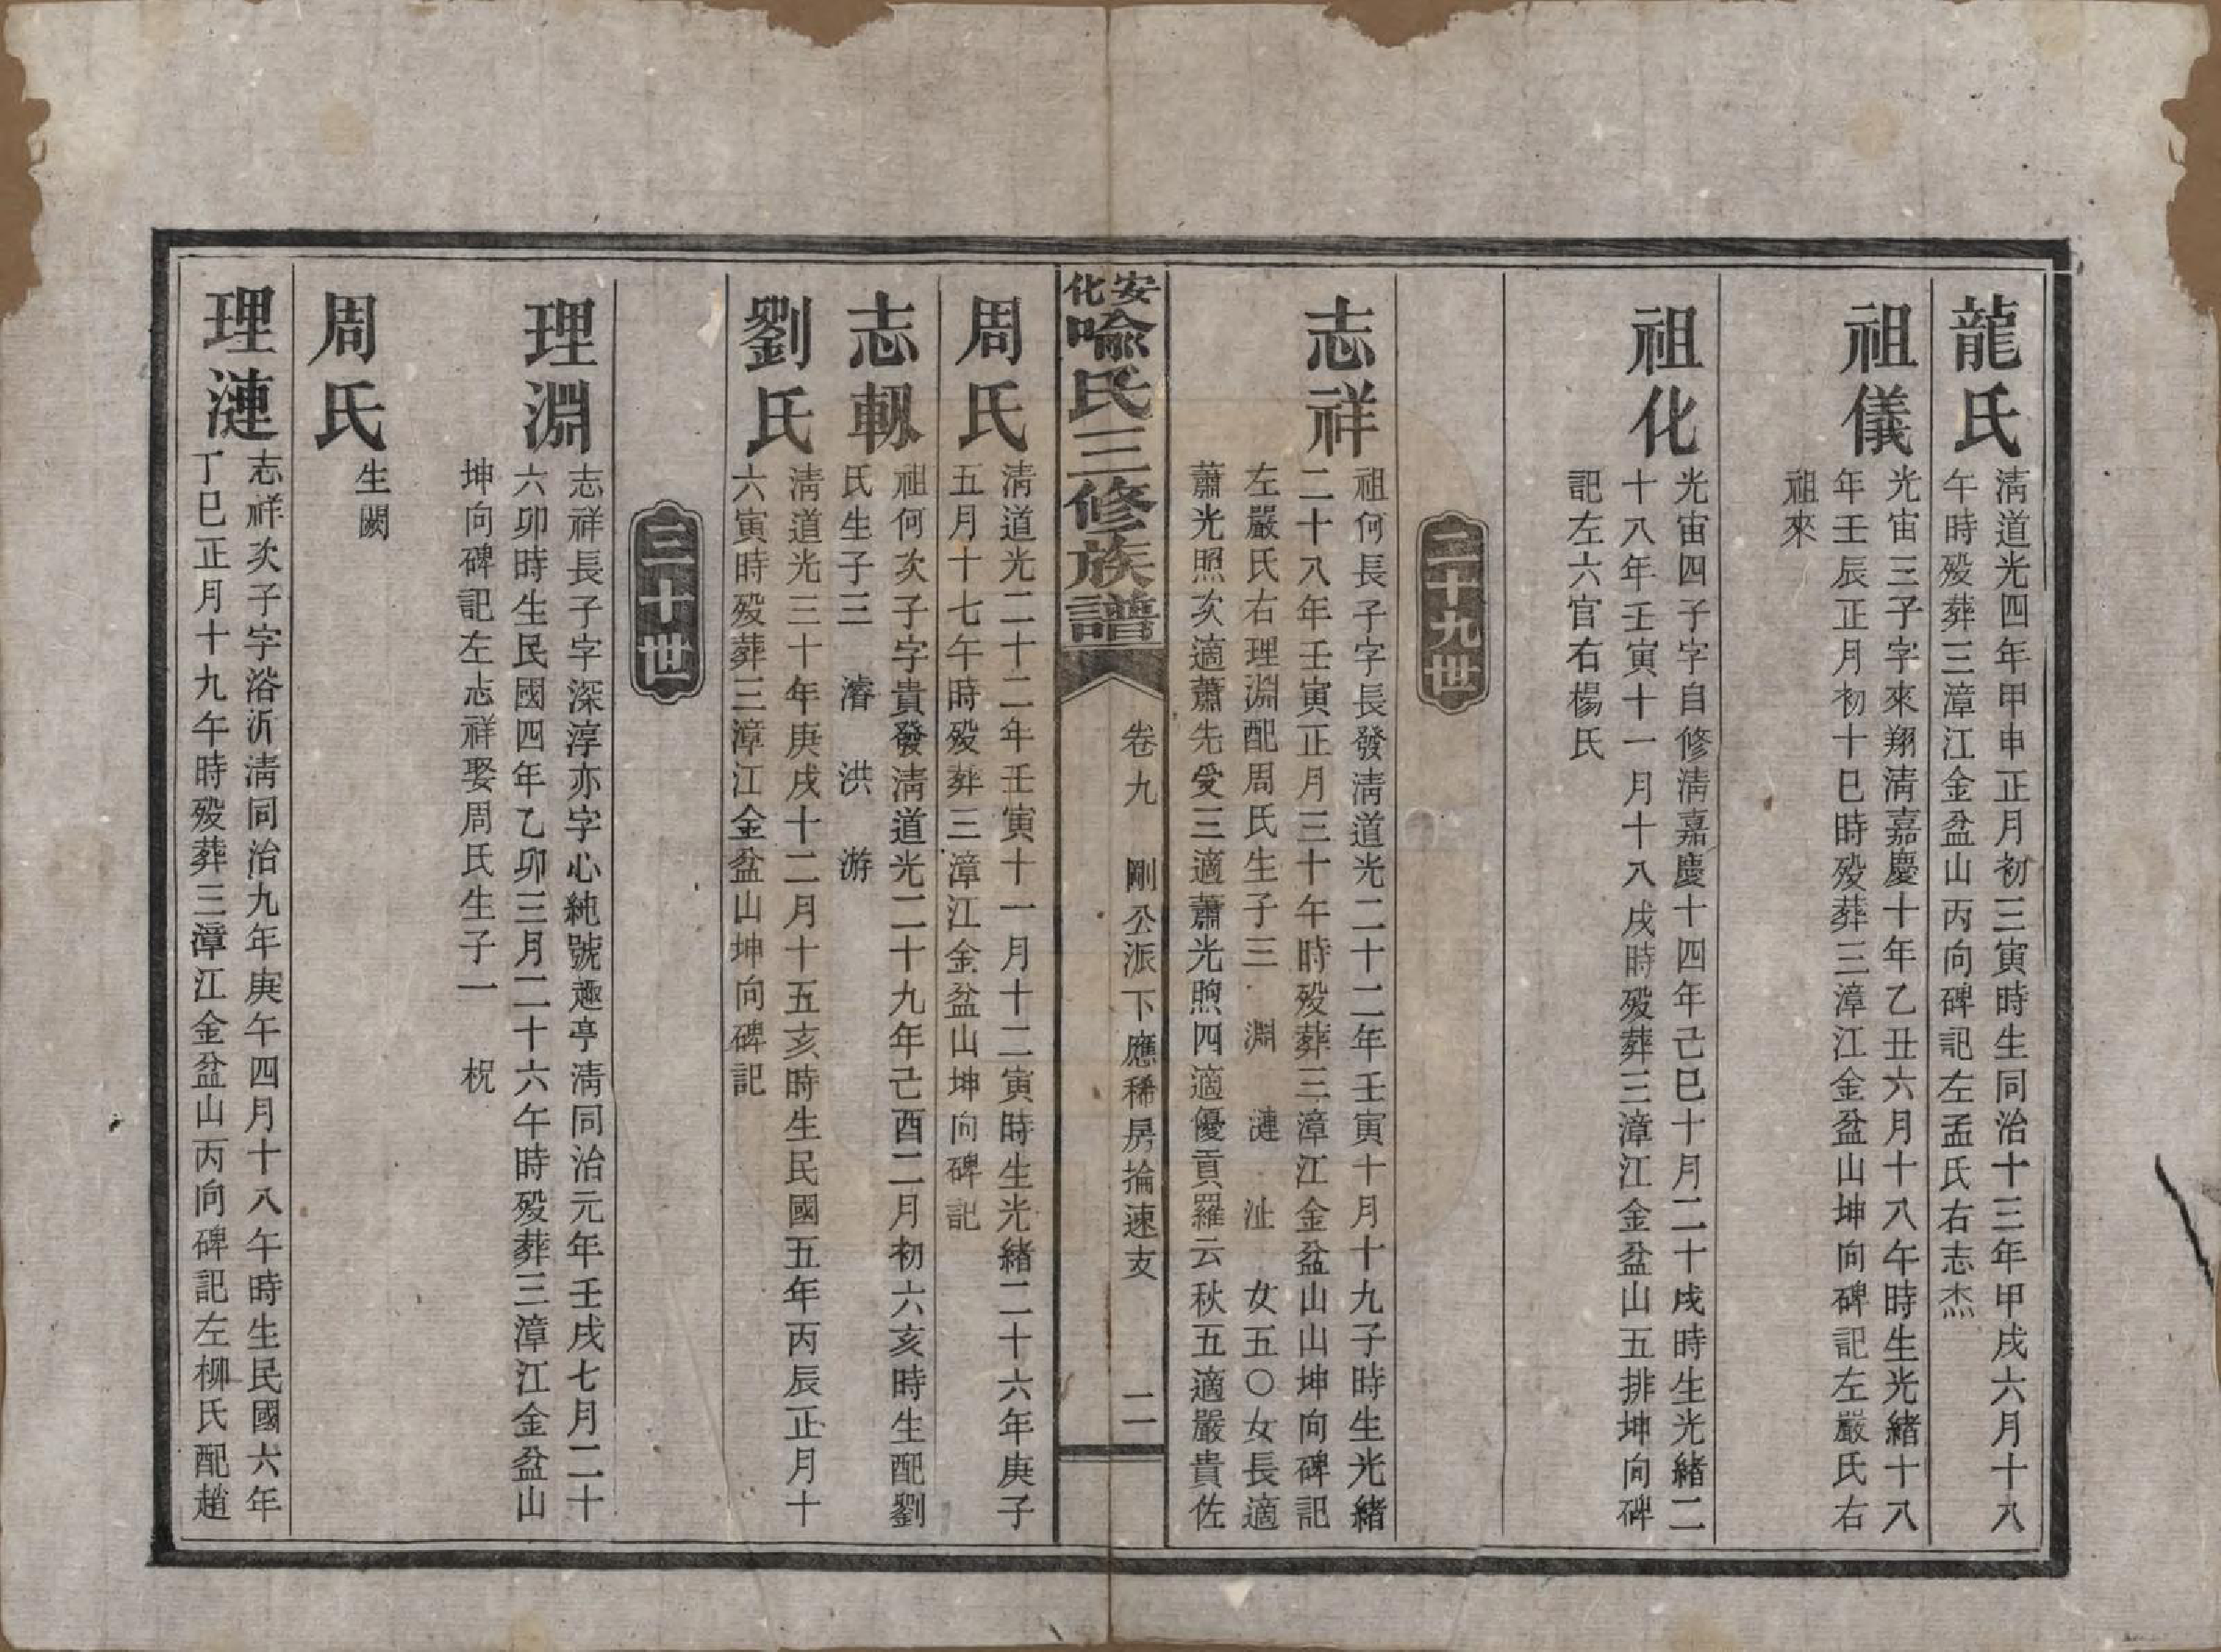 龍氏
淸道光四年甲申正月初三寅時生同治十三年甲戌六月十八
午時歿葬三漳江金盆山丙向碑記左孟氏右志杰
祖儀
光宙三子字來翔淸嘉慶十年乙丑六月十八午時生光緒十八
年壬辰正月初十巳時歿葬三漳江金盆山坤向碑記左嚴氏右
祖來
祖化
光宙四子字自修淸嘉慶十四年己巳十月二十戌時生光緒二
十八年壬寅十一月十八戌時歿葬三漳江金盆山五排坤向碑
記左六官右楊氏
二十九世
志祥
祖何長子字長發淸道光二十二年壬寅十月十九子時生光緒
二十八年壬寅正月三十午時歿葬三漳江金盆山山坤向碑記
左嚴氏右理淵配周氏生子三 淵 漣 沚 女五〇女長適
蕭光照次適蕭先受三適蕭光煦四適優貢羅云秋五適嚴貴佐
安化喩氏三修族譜
卷九 剛公派下應稀房掄速支 二
周氏
淸道光二十二年壬寅十一月十二寅時生光緒二十六年庚子
五月十七午時歿葬三漳江金盆山坤向碑記
志軔
祖何次子字貴發淸道光二十九年己酉二月初六亥時生配劉
氏生子三 濬 洪 游
劉氏
淸道光三十年庚戌十二月十五亥時生民國五年丙辰正月十
六寅時歿葬三漳江金盆山坤向碑記
三十世
理淵
志祥長子字深淳亦字心純號趣亭淸同治元年壬戌七月二十
六卯時生民國四年乙卯三月二十六午時歿葬三漳江金盆山
坤向碑記左志祥娶周氏生子一 柷
周氏
生闕
理漣
志祥次子字浴沂淸同治九年庚午四月十八午時生民國六年
丁巳正月十九午時歿葬三漳江金盆山丙向碑記左柳氏配趙